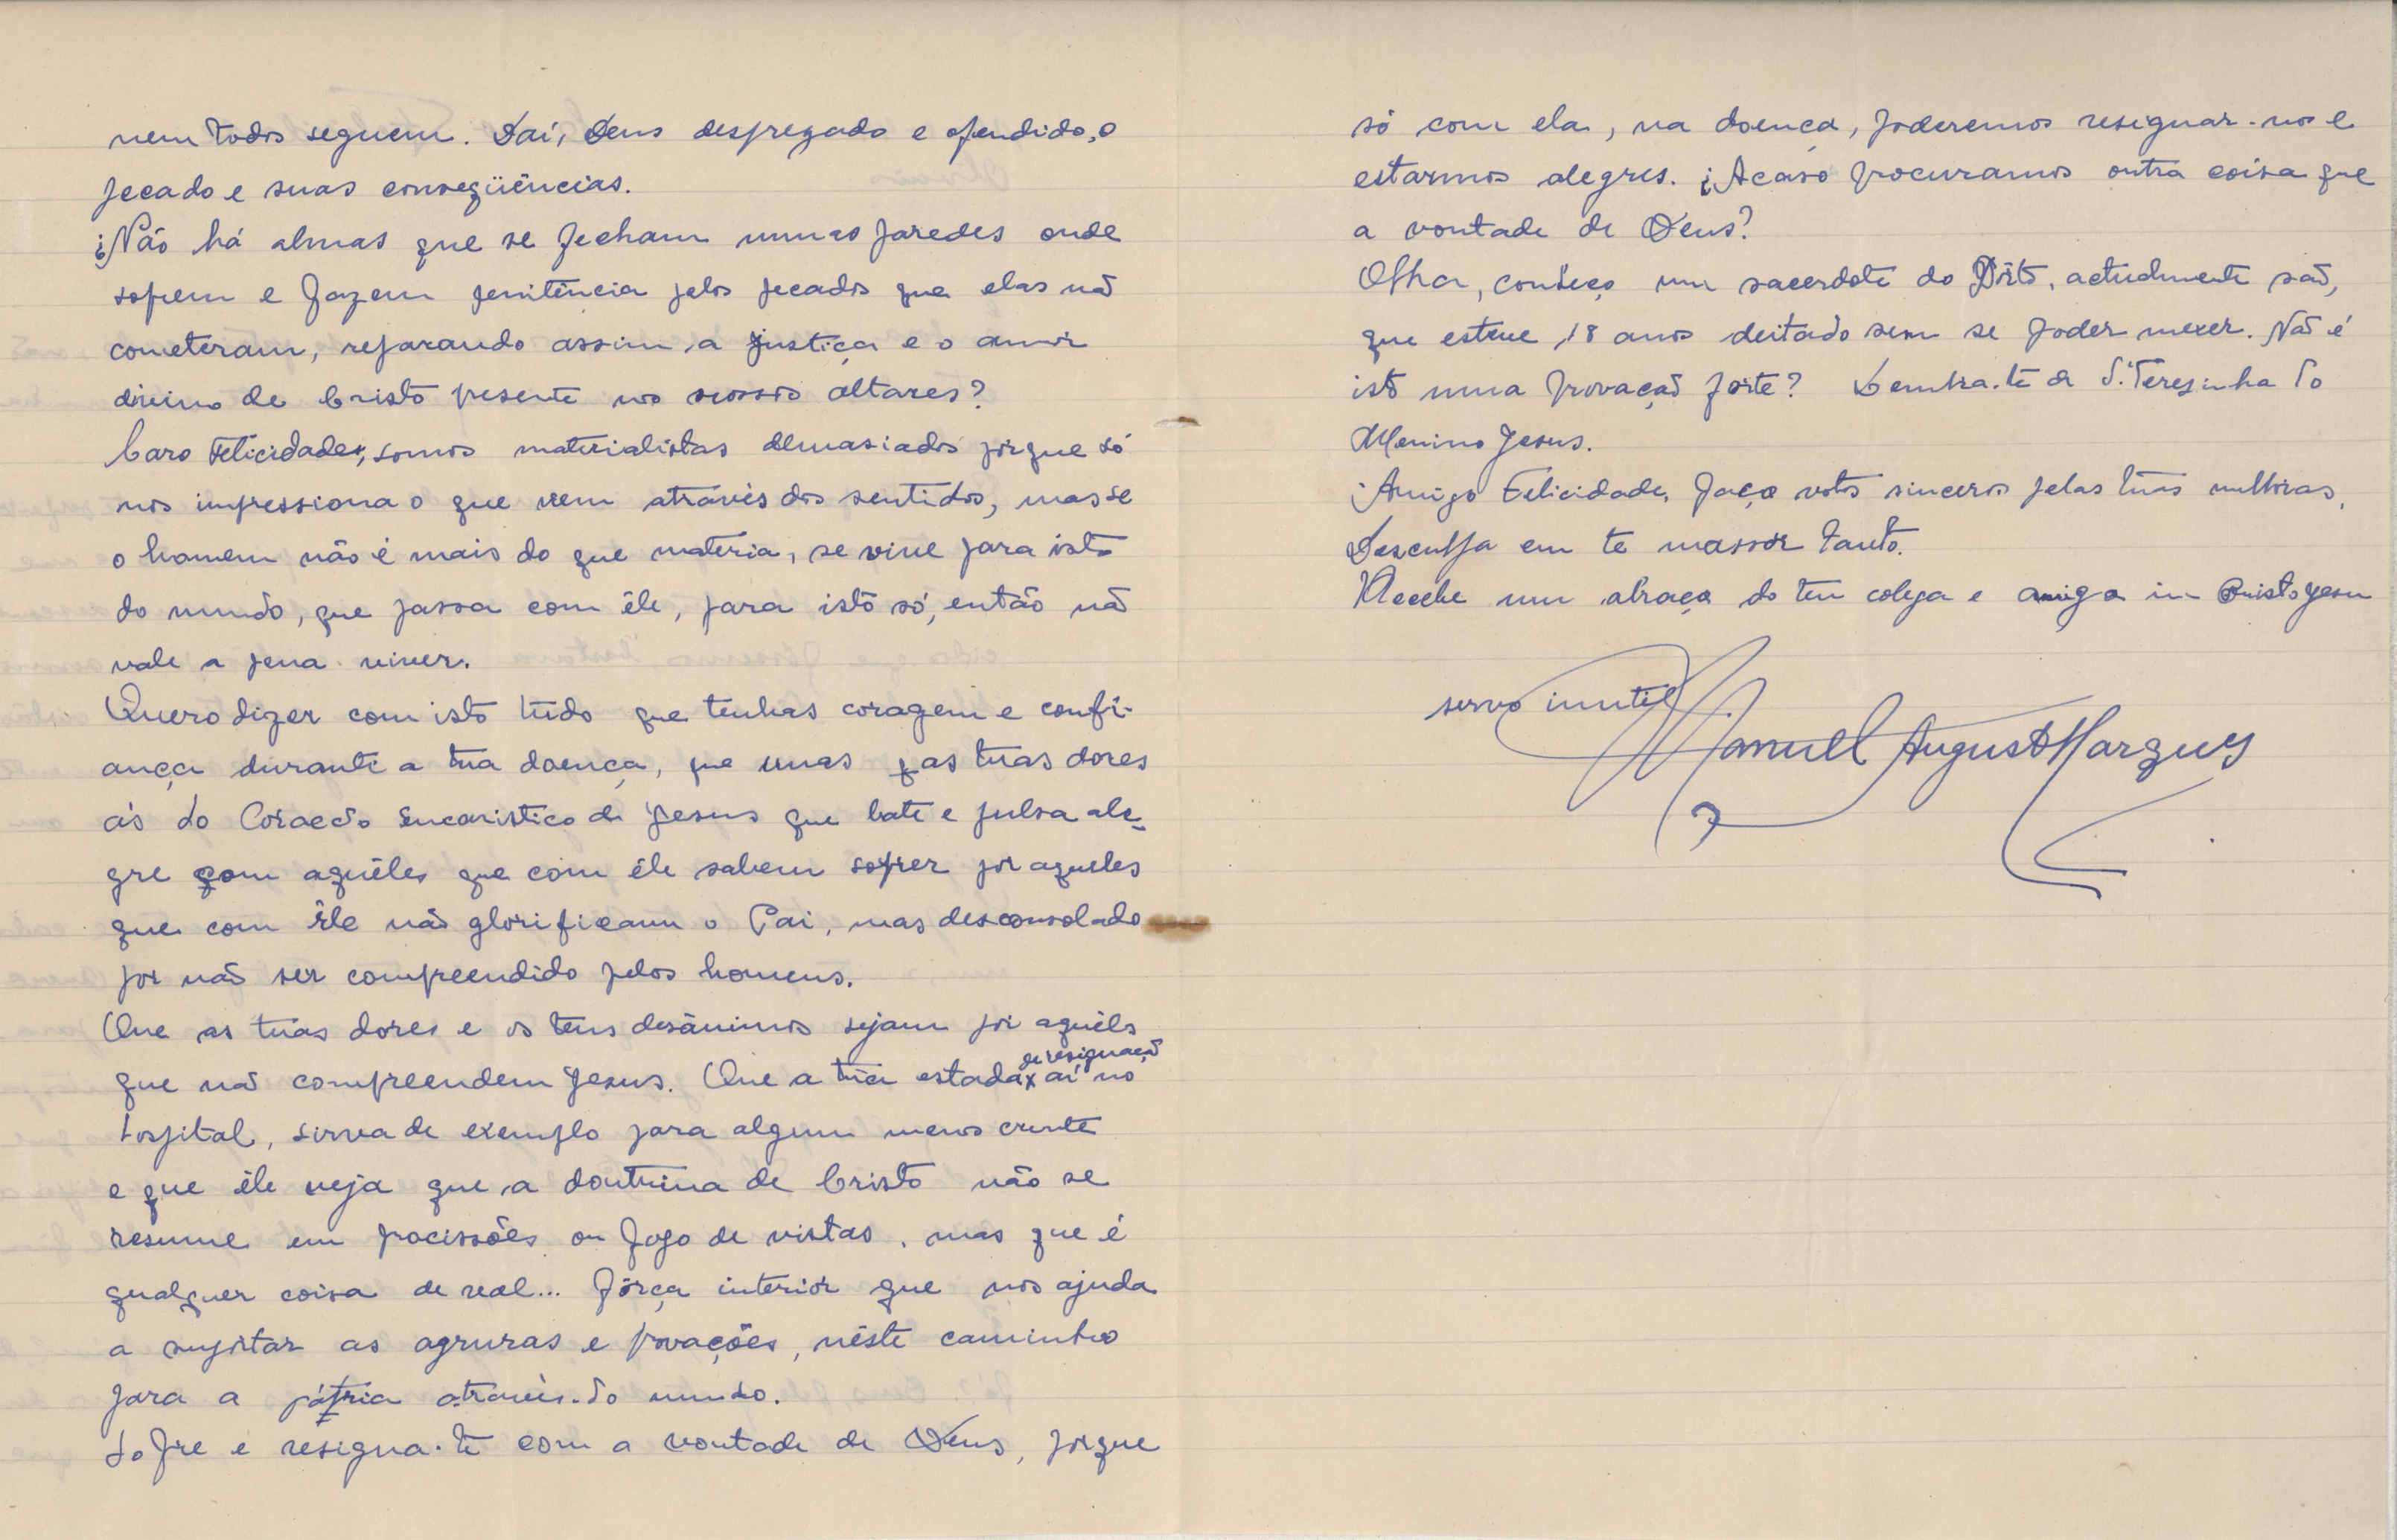 nem todos seguem. Daí, Deus desprezado e ofendido, o
pecado e suas conseqüências.
¿Não há almas que se fecham numas paredes onde
sofrem e fazem penitência pelos pecados que elas não
cometeram, reparando assim a justiça e o amor
divino de Cristo presente nos nossos altares?
Caro Felicidade, somos materialistas demasiados porque só
nos impressiona o que vem através dos sentidos, mas se
o homem não é mais do que materia, se vive para isto
do mundo, que passa com êle, para isto só, então não
vale a pena viver.
Quero dizer com isto tudo que tenhas coragem e confi-
ança durante a tua doença, que unas as tuas dores
ás do Coração Eucaristico de Jesus que bate e pulsa ale-
gre com aquêles que com êle sabem sofrer por aqueles
que com êle não glorificam o Pai, mas desconsolado
por não ser compreendido pelos homens.
Que as tuas dores e os teus desânimos sejam por aquêls
que não compreendem Jesus. Que a tua estada de resignação aí no
hospital, sirva de exemplo para algum menos crente
e que êle veja que a doutrina de Cristo não se
resume em procissões ou fogo de vistas, mas que é
qualquer coisa de real... fôrça interior que nos ajuda
a suportar as agruras e provações, nêste caminho
para a pátria através do mundo.
Sofre e resigna-te com a vontade de Deus, porque
só com ela, na doença, poderemos resignar-nos e
estarmos alegres. ¿Acaso procuramos outra coisa que
a vontade de Deus?
Olha, conheço um sacerdote do Pôrto, actualmente são,
que esteve 18 anos deitado sem se poder mexer. Não é
isto uma provação forte? Lembra-te de S. Teresinha do
Menino Jesus.
Amigo Felicidade, faço votos sinceros pelas tuas melhoras.
Desculpa em te massar tanto.
Recebe um abraço do teu colega e amigo in Cristo Jesu
servo inutil
Manuel Augusto Marques